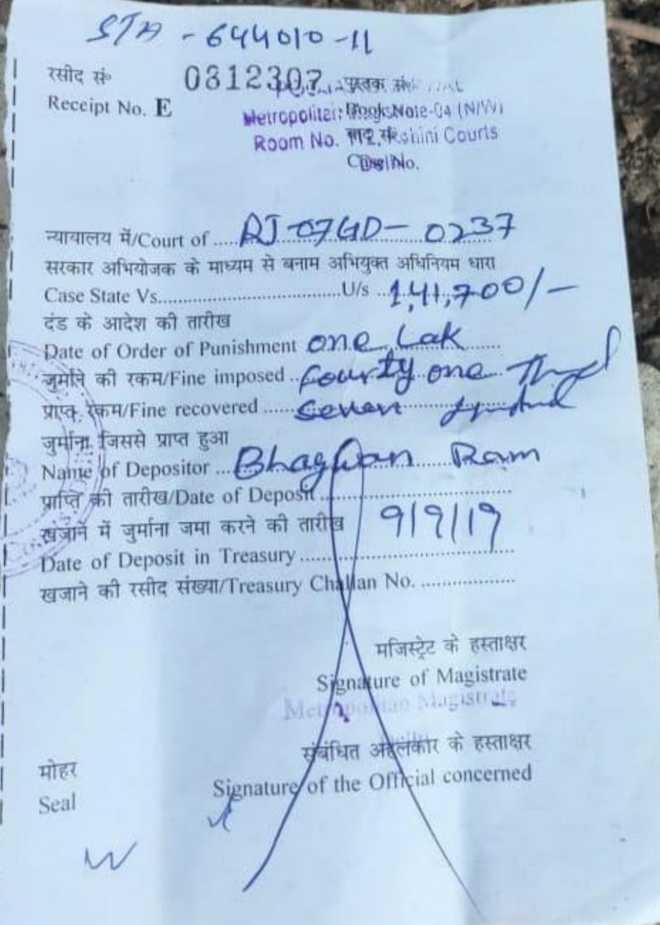 STA - 644010-11
रसीद सं॰ 0312307 पुस्तक सं॰
Receipt No. E Book No.
Metropolitan Magistrate-04 (N/W)
Room No. 112, Rohini Courts
Delhi
Case No.
न्यायालय में/Court of ..... RJ-07GD-0237
सरकार अभियोजक के माध्यम से बनाम अभियुक्त अधिनियम धारा
Case State Vs. .....U/s ... 1,41,700/-
दंड के आदेश की तारीख
Date of Order of Punishment one Lak
जुर्माने की रकम/Fine imposed .. Fourty one
प्राप्त रकम/Fine recovered ...... Seven Hundred
जुर्माना जिससे प्राप्त हुआ
Name of Depositor ... Bhagwan Ram
प्राप्ति की तारीख/Date of Deposit
खज़ाने में जुर्माना जमा करने की तारीख 9/9/19
Date of Deposit in Treasury
खजाने की रसीद संख्या/Treasury Challan No.
मजिस्ट्रेट के हस्ताक्षर
Signature of Magistrate
Metropolitan Magistrate
संबंधित अहलकार के हस्ताक्षर
मोहर
Signature of the Official concerned
Seal